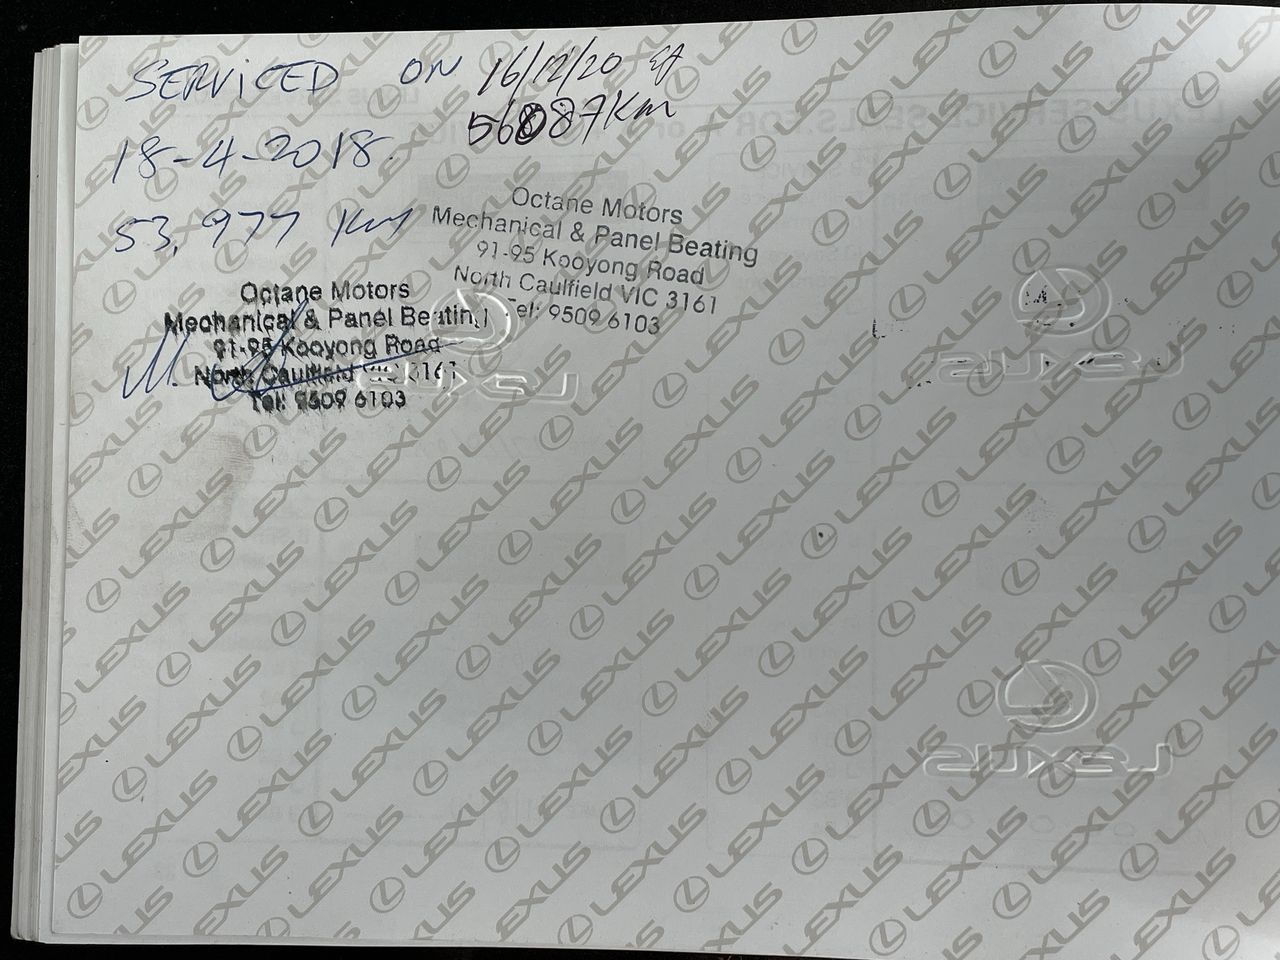 SERVICED ON
18-4-2018.
53,977 Km
Octane Motors
Mechanical & Panel Beating
91-95 Kooyong Road
North Caulfield VIC 3161
Tel: 9509 6103
16/12/20
56087Km
Octane Motors
Mechanical & Panel Beating
91-95 Kooyong Road
North Caulfield VIC 3161
Tel: 9509 6103
LEXUS